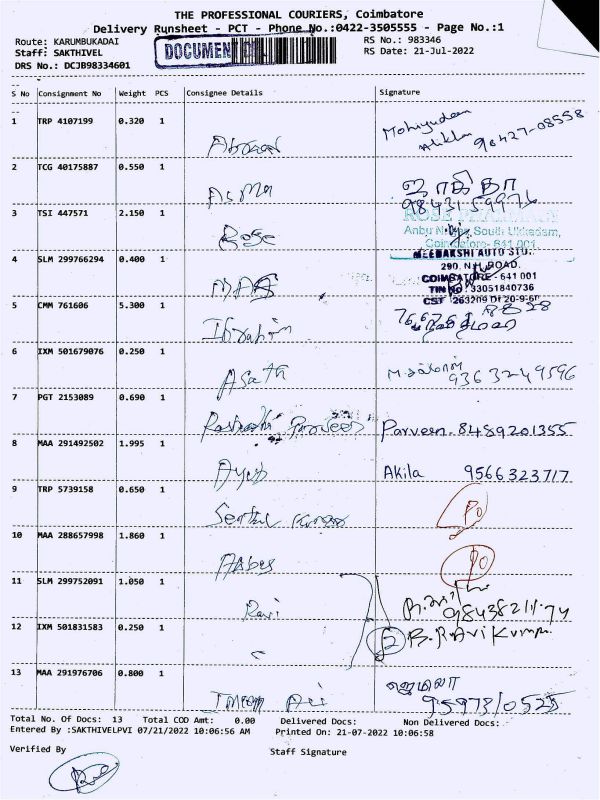 THE PROFESSIONAL COURIERS, Coimbatore
Delivery Runsheet - PCT - Phone No.:0422-3505555 - Page No.:1
Route: KARUMBUKADAI RS No.: 983346
Staff: SAKTHIVEL DOCUMEN RS Date: 21-Jul-2022
DRS No.: DCJB98334601
S No Consignment No Weight PCS Consignee Details Signature
1 TRP 4107199 0.320 1 Mohiyudeen
98427-08558
2 TCG 40175887 0.550 1 Asma
9843159976
3 TSI 447571 2.150 1 Rose ROSE PHARMACY
Anbu Nagar, South Ukkadam,
Coimbatore- 641 001
4 SLM 299766294 0.400 1 MEENAKSHI AUTO
290. N.H. ROAD,
COIMBATORE - 641 001
TIN NO 33051840736
CST 263209 Dt 20-9-60
5 CMM 761606 5.300 1 Ibrahim
6 IXM 501679076 0.250 1 Asath 9363249596
7 PGT 2153089 0.690 1 Parveen. 8489201355
8 MAA 291492502 1.995 1 Ayub Akila 9566323717
9 TRP 5739158 0.650 1 Senthil Kumar
10 MAA 288657998 1.860 1 Abbas
11 SLM 299752091 1.050 1 Ravi
12 IXM 501831583 0.250 1 2 B. Ravi Kumar
13 MAA 291976706 0.800 1 Imran Ali ஜெமிலா
9597310525
Total No. Of Docs: 13 Total COD Amt: 0.00 Delivered Docs: Non Delivered Docs:
Entered By :SAKTHIVELPVI 07/21/2022 10:06:56 AM Printed On: 21-07-2022 10:06:58
Verified By Staff Signature